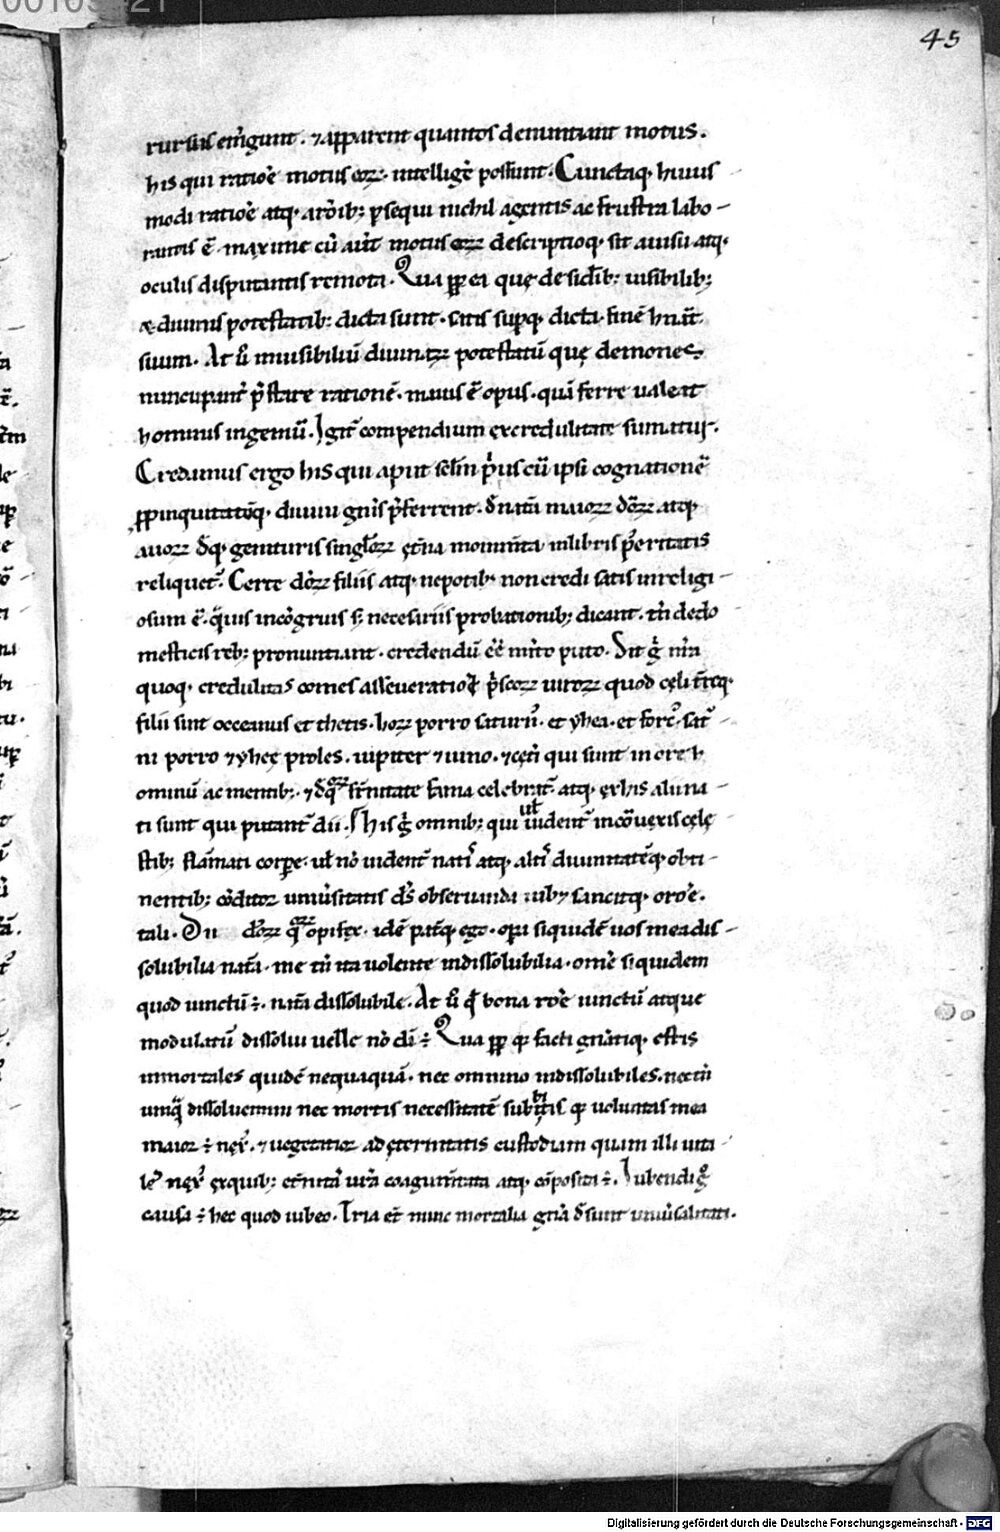 45
rursus em̄gunt . ⁊ apparent quantos denuntiant motus .
his qui ratiōe motus eoꝝ . intelligē possunt . Cunctaq; huius
modi ratiōe atq; ꝑsequi nichil agentis ac frustra labo-
rantis ē . maxime cū aut̄ motus eoꝝ descriptioq; sit a uisu atq;
oculis disputantis remota . Qua ꝓpt ea que de siderib; uisibilib;
ac diuinis potestatib; dicta sunt . satis supq; dicta finē hn̄t
suum . At ū inuisibiliū diuinaꝝ potestatū que demones
nuncupant̄ p̄stare rationē . maius ē opus . quā ferre ualeat
hominis ingeniū . Igit̄ compendium ex credulitate sumatur .
Credamus ergo his qui aput sclm̄ p̄us cū ipsi cognationē
ꝓpinquitatēq; diuini gn̄is p̄ferrent . d̄ natā maioꝝ d̄oꝝ atq;
auoꝝ d̄q; genituris singl̄oꝝ et̄na monim̄ta in libris p̄eritatis
reliquer̄ . Certe d̄oꝝ filiis atq; nepotib; non credi satis inreligi-
osum ē . q̄uis incōgruis ł necesariis probationib; dicant . tn̄ de do
mesticis reb; pronuntiant . credendū ēē m̄ito puto . Sit g̊ nr̄a
quoq; credulitas comes asseueratiōi p̄scoꝝ uiroꝝ quod celi t̄req;
filii sint occeanus et thetis . hoꝝ porro saturn⁹ . et yhea . et forc⁹ . sat̄-
ni porro ⁊ yhee proles . iupiter ⁊ iuno . ⁊ cet̄i qui sunt in ore h
ominū ac mentib; . ⁊ d̄ quoꝝ fr̄nitate fama celebrat̄ . atq; ex his alii na-
ti sunt qui putant̄ dii . His g̊ omnib; qui uł uident̄ in cōuexis cele
stib; flāmati corpe . uł nō uident̄ nat̄i atq; alt̄i diuinitatēq; obti-
nentib; cōditor uniūsitatis d̄s obseruanda iub; sancitq; orōe .
tali . Dii d̄oꝝ quoꝝ opifex . idē pat̄q; ego . opa siquidē uos mea dis-
solubilia nata . me tn̄ ita uolente indissolubilia . om̄e siquidem
quod iunctū ÷ . natā dissolubile . At ū q̄ bona rōe iunctū atque
modulatū dissolui uelle nō d̄i ÷ Qua ꝓpt q̄ facti gn̄atiq; estis
inmortales quidē nequaquā . nec omnino indissolubiles . nec tn̄
umq̄ dissoluemini nec mortis necessitatē subibitis q̄ uoluntas mea
maior ÷ nex⁹ . ⁊ uegetatior ad eternitatis custodiam quam illi uita
le nex⁹ ex quib; et̄nitā ur̄a coagum̄tata atq; cōposita ÷ . Iubendi g̊
causa ÷ hec quod iubeo . Tria et̄ nunc mortalia gn̄a d̄sunt uniūsalitati .
Digitalisierung gefördert durch die Deutsche Forschungsgemeinschaft - DFG